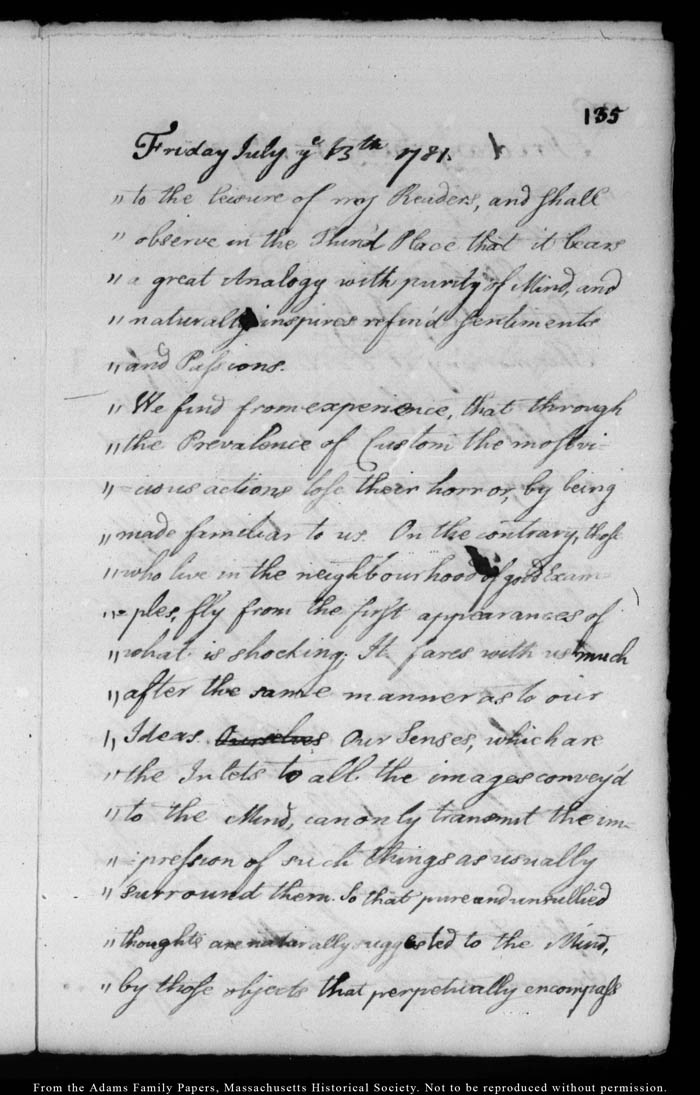 135
Friday July ye 13th 1781.
" to the leisure of my Readers, and shall
" observe in the Third Place that it bears
" a great Analogy with purity of Mind, and
" naturally inspires refin'd Sentiments
" and Passions.
" We find from experience, that through
" the Prevalence of Custom the most vi-
" -cious actions lose their horror, by being
" made familiar to us. On the contrary, those
" who live in the neighbourhood of good Exam-
" -ples, fly from the first appearances of
" what is shocking; It fares with us much
" after the same manner as to our
" Ideas. Ourselves Our Senses, which are
" the Inlets to all the images convey'd
" to the Mind, can only transmit the im-
" -pression of such things as usually
" surround them. So that pure and unsullied
" thoughts are naturally suggested to the Mind,
" by those objects that perpetually encompass
From the Adams Family Papers, Massachusetts Historical Society. Not to be reproduced without permission.